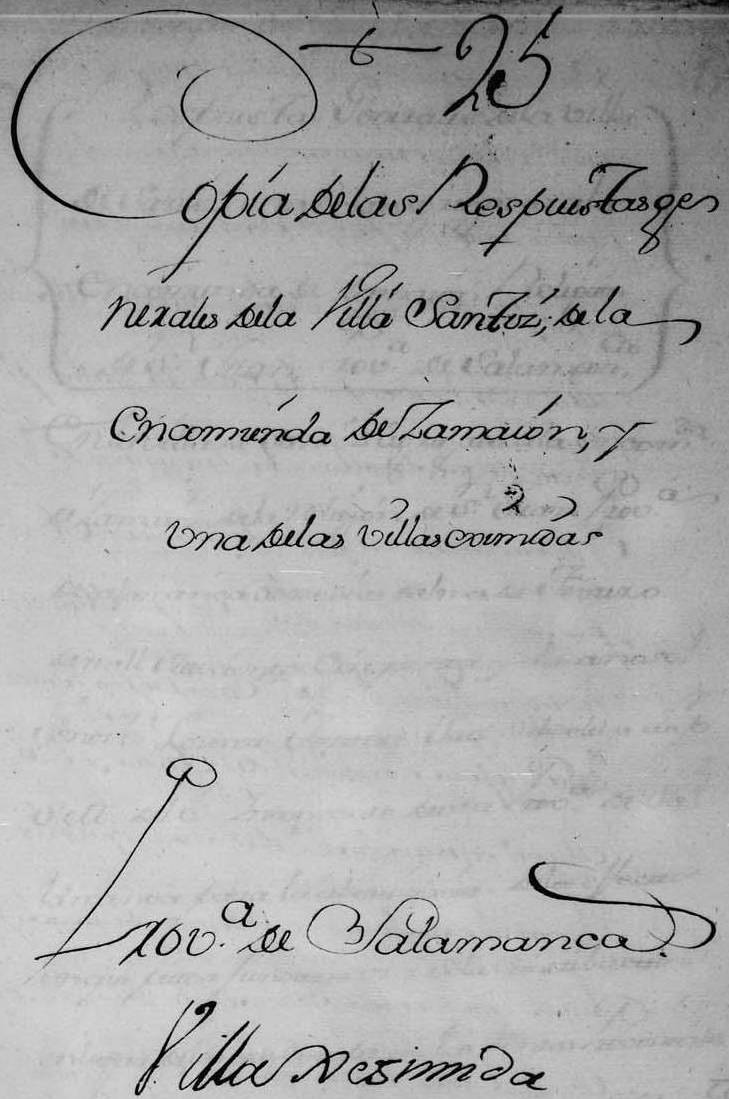 25
Copia delas Respuestas ge
nerales dela Villa Santiz, dela
Encomienda de Zamaión, y
Una delas Villas eximidas
Prov.ª de Salamanca.
Villa Eximida